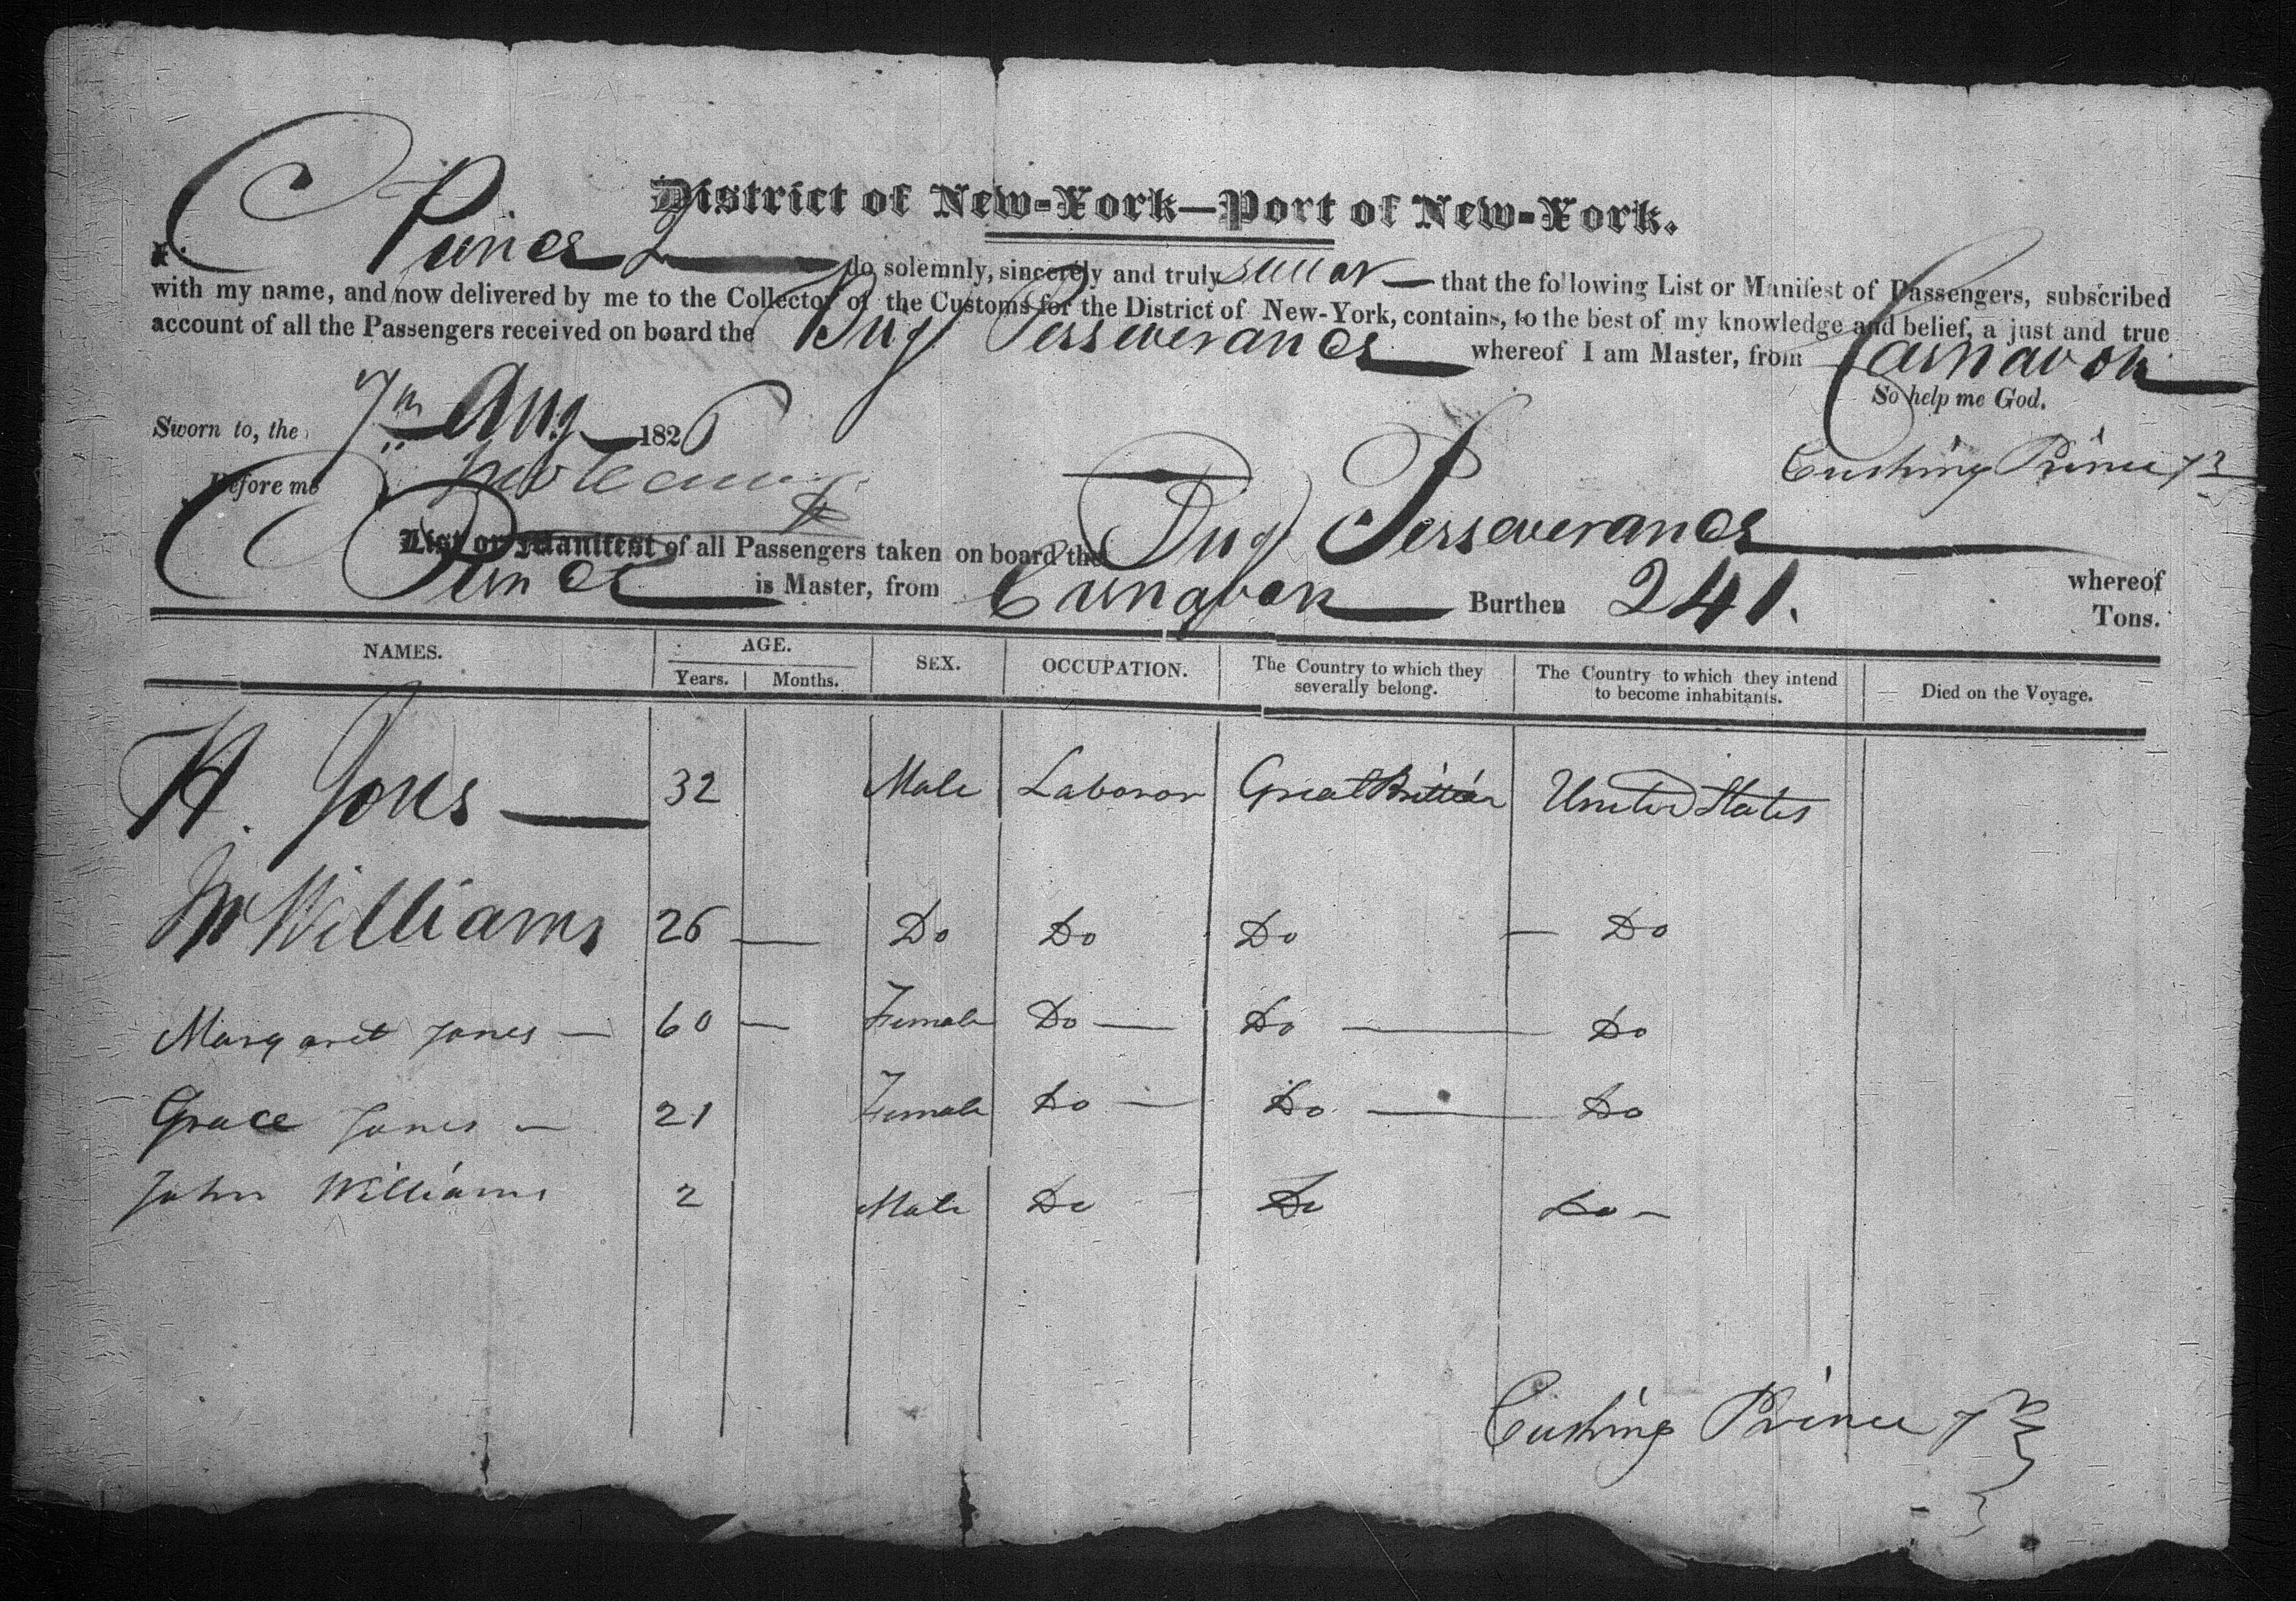 District of New-York—Port of New-York.
I C Prince Jr do solemnly, sincerely and truly swear that the following List or Manifest of Passengers, subscribed
with my name, and now delivered by me to the Collector of the Customs for the District of New-York, contains, to the best of my knowledge and belief, a just and true
account of all the Passengers received on board the Brig Perseverance whereof I am Master, from Carnavon
So help me God.
Sworn to, the 7th Aug 1826
Cushing Prince Jr
Before me
List or Manifest of all Passengers taken on board the Brig Perseverance whereof
C Prince is Master, from Carnavon Burthen 241. Tons.
NAMES. AGE. Years. Months. SEX. OCCUPATION. The Country to which they severally belong. The Country to which they intend to become inhabitants. Died on the Voyage.
H. Jones 32 Male Laboror Great Brittian United States
Williams 26 — Do Do Do — Do
Margaret Jones — 60 — Female Do — Do — Do
Grace Jones — 21 Female Do — Do — Do
John Williams 2 Male Do Do Do —
Cushing Prince Jr